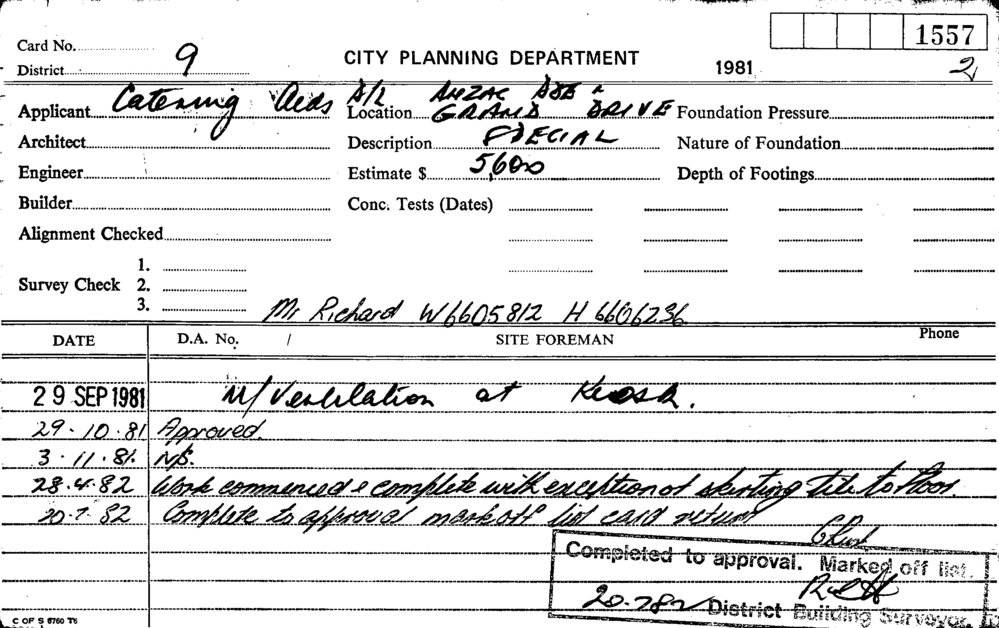 1557
Card No.
CITY PLANNING DEPARTMENT
1981
2
District 9
Applicant Catering Aids P/L Location ANZAC PDE & GRAND DRIVE Foundation Pressure
Architect Description SPECIAL Nature of Foundation
Engineer Estimate $ 5,600 Depth of Footings
Builder Conc. Tests (Dates)
Alignment Checked
1.
Survey Check 2.
3.
Mr Richard W6605812 H 6606236
DATE D.A. No. / SITE FOREMAN Phone
29 SEP 1981 M/Ventilation at Kiosk.
29.10.81 Approved.
3.11.81. N/S.
28.4.82 Work commenced & complete with exception of skirting tile to floor.
20.7.82 Complete to approval mark off list card return
Completed to approval. Marked off list.
20.7.82 District Building Surveyor.
C OF S 6760 T6